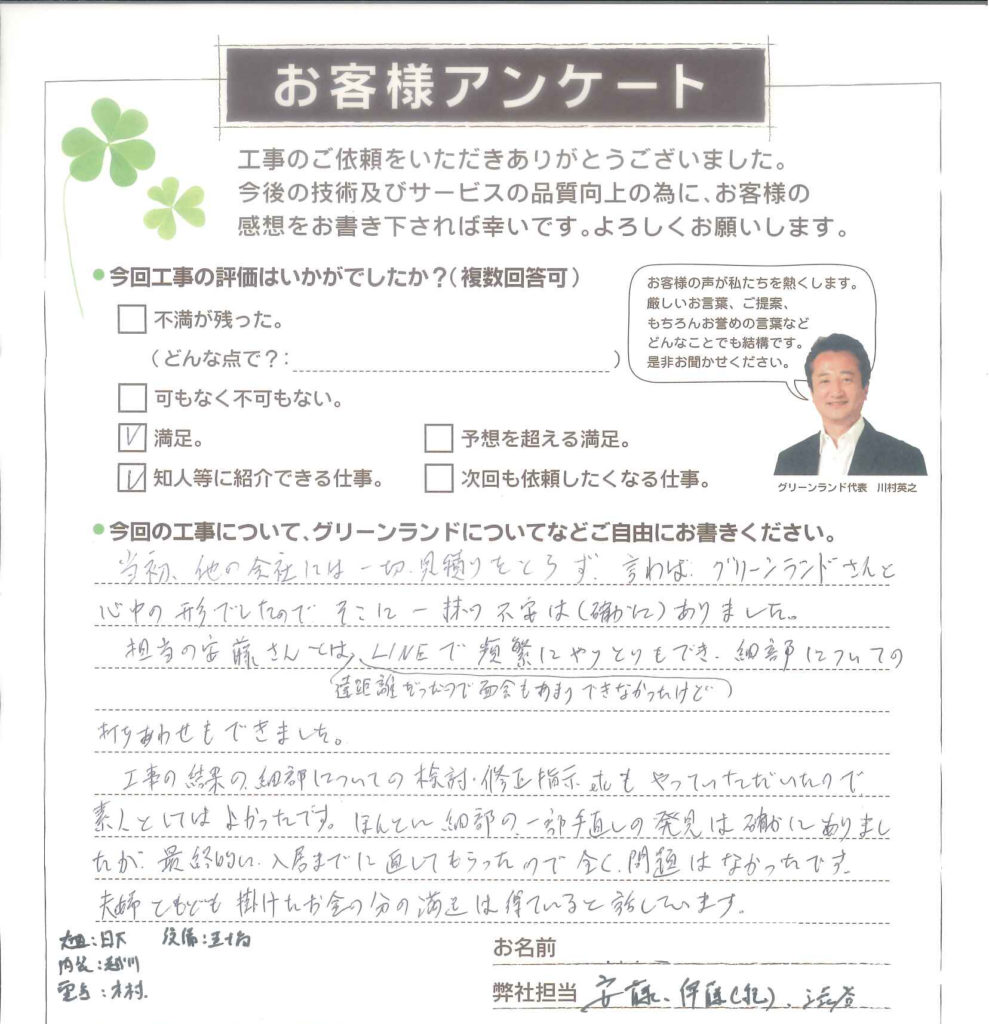 お客様アンケート
工事のご依頼をいただきありがとうございました。
今後の技術及びサービスの品質向上の為に、お客様の
感想をお書き下されば幸いです。よろしくお願いします。
●今回工事の評価はいかがでしたか？（複数回答可）
不満が残った。
（どんな点で？：　　　）
可もなく不可もない。
満足。
予想を超える満足。
知人等に紹介できる仕事。
次回も依頼したくなる仕事。
お客様の声が私たちを熱くします。
厳しいお言葉、ご提案、
もちろんお誉めの言葉など
どんなことでも結構です。
是非お聞かせください。
グリーンランド代表　川村英之
●今回の工事について、グリーンランドについてなどご自由にお書きください。
当初、他の会社には一切、見積りをとらず、言わば、グリーンランドさんと
心中の形でしたので そこに一抹の不安は(確かに)ありました。
担当の安藤さんとは、LINEで頻繁にやりとりもでき、細部についての
遠距離だったので面会もあまりできなかったけど）
打ちあわせもできました。
工事の結果の、細部についての検討・修正指示etcもやっていただいたので
素人としてはよかったです。ほんとに細部の、一部手直しの発見は確かにありまし
たが、最終的に、入居までに直してもらったので全く、問題はなかったです。
夫婦ともども掛けたお金の分の満足は得ていると話しています。
大工：日下
設備：五十嵐
内装：越川
電気：木村
お名前
弊社担当 安藤、伊藤(礼)、渋谷